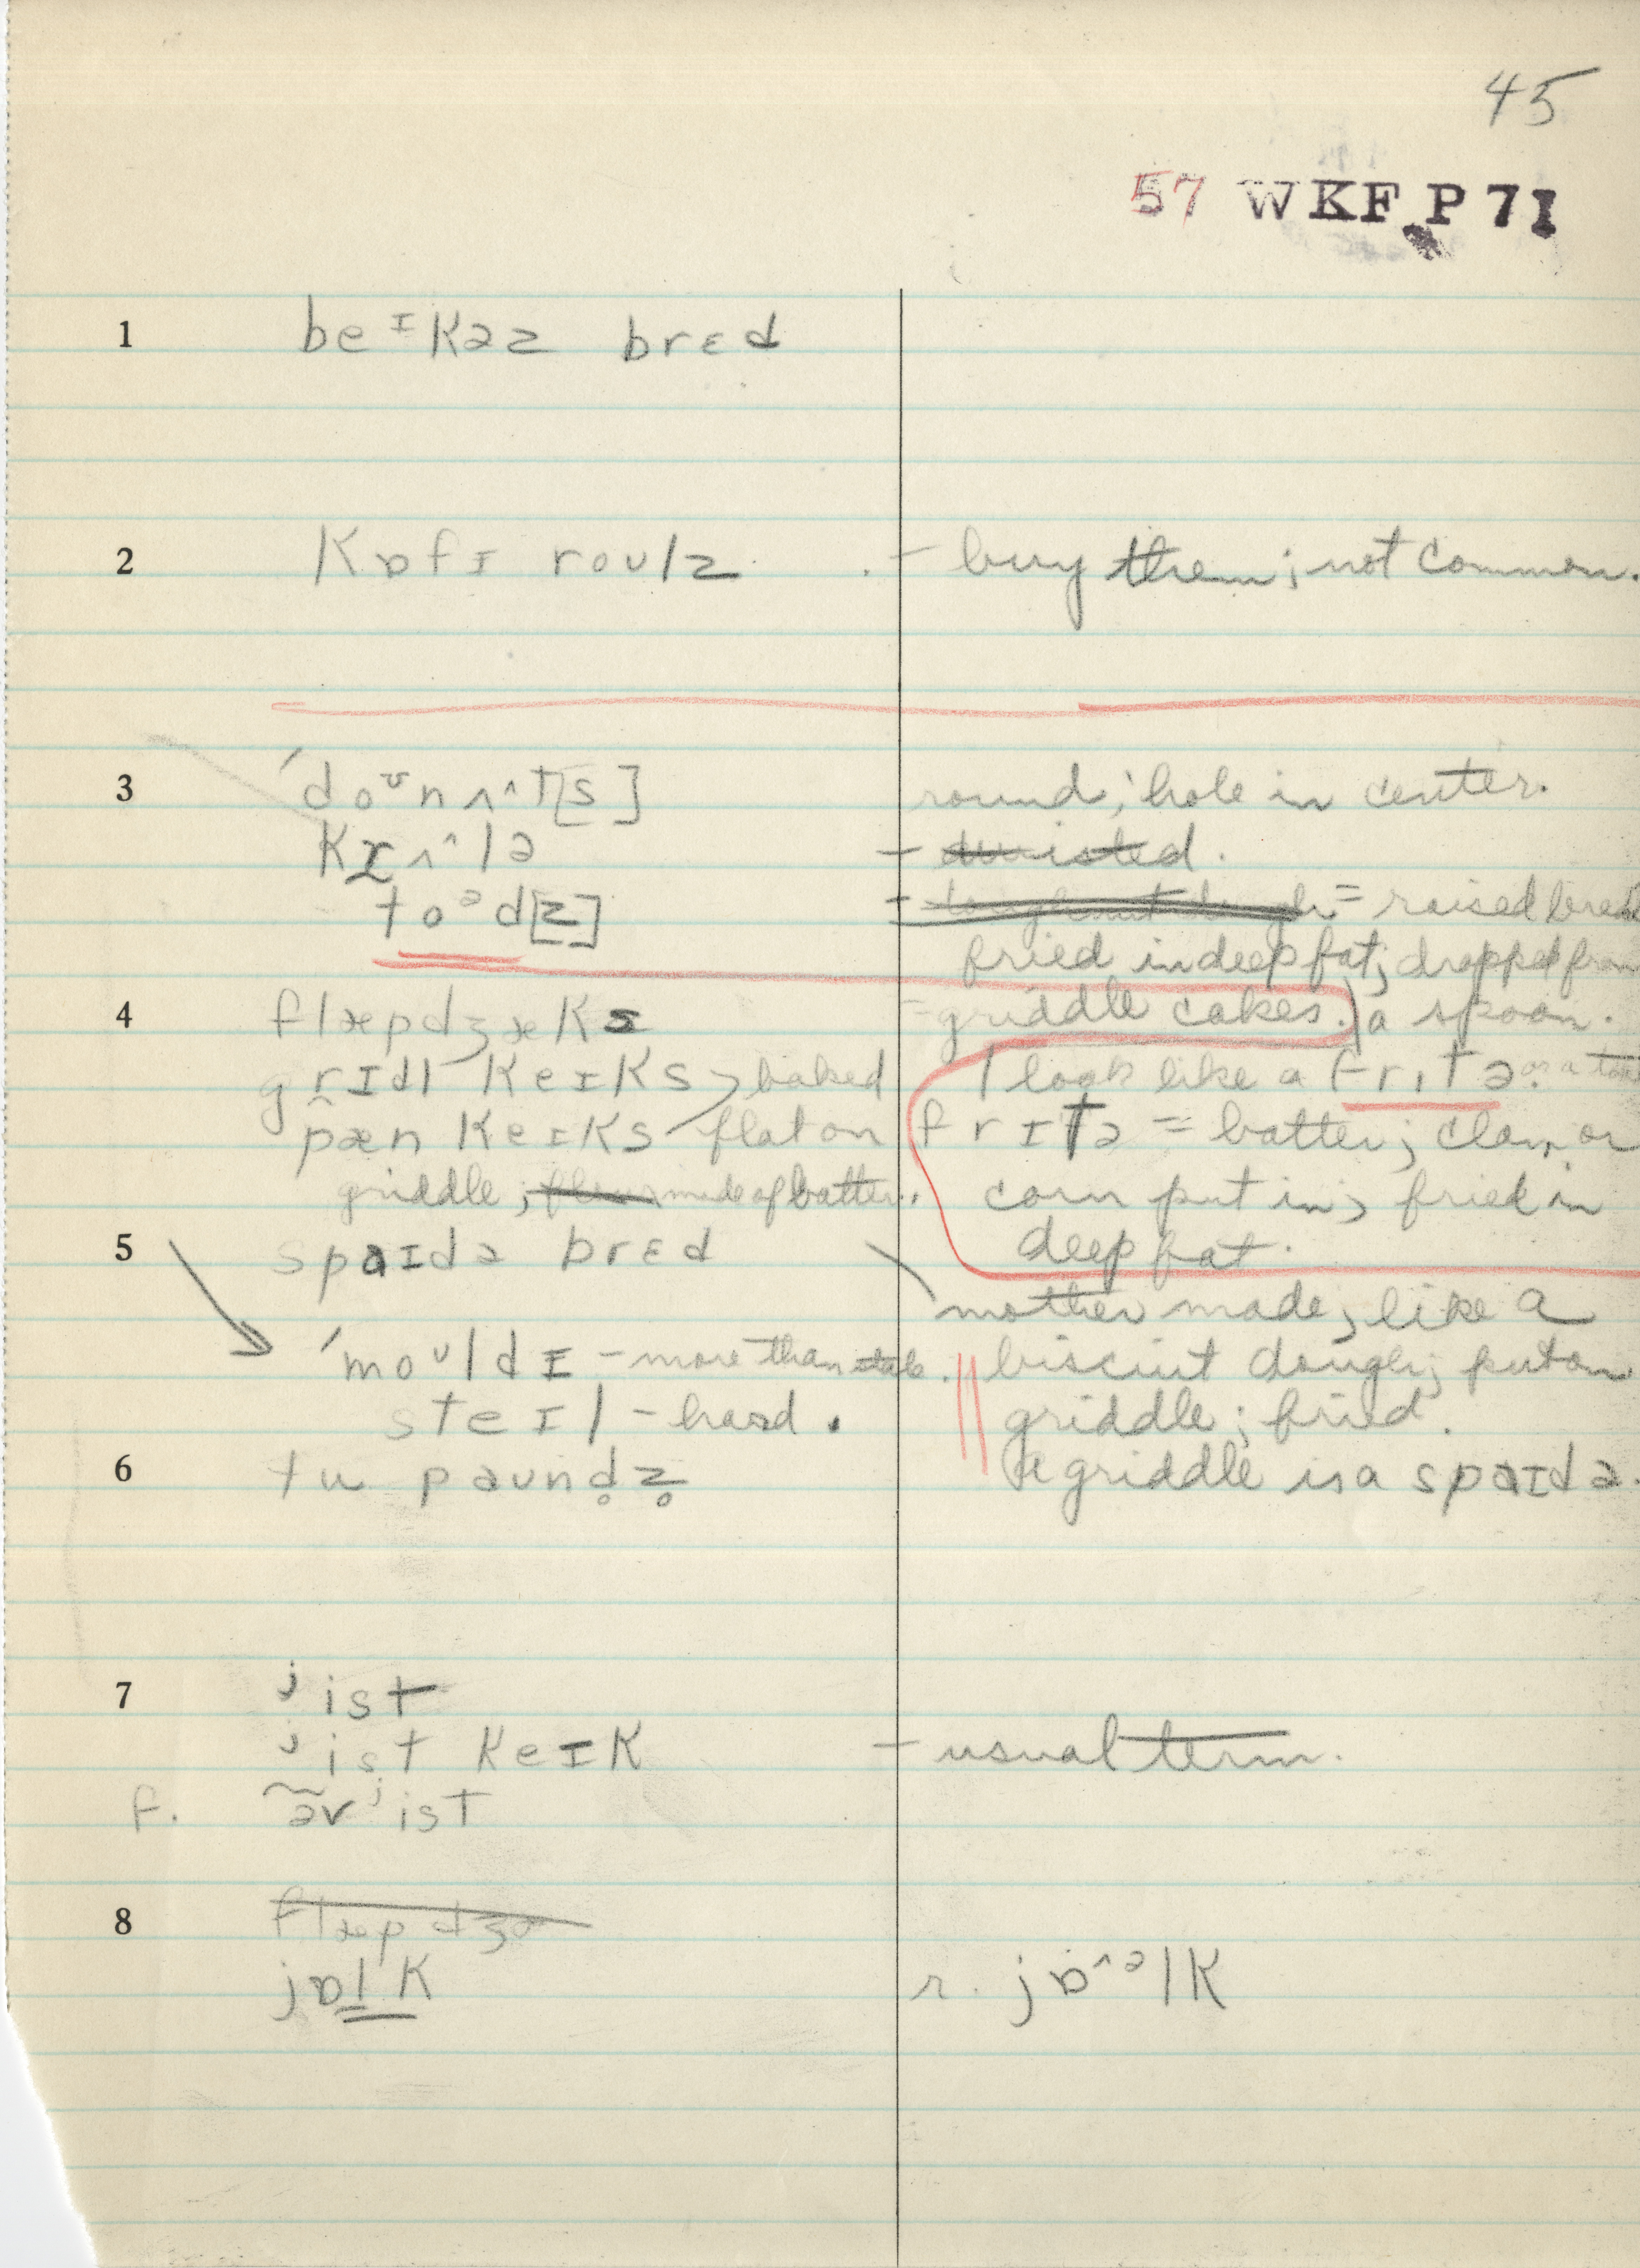 45
57 WKF P 71
1 beᶦkəz brɛd
2 kɒfɪ roulz - buy them; not common.
3 ˊdoᶷnʌ^t[s] round; hole in center.
krʌ^lə - twisted.
toᵊd[z] - = raised bread
fried in deep fat; dropped from
4 flæpdʒæks - griddle cakes. a spoon.
grɪdl keɪks baked look like a frɪtə or a toad
pæn keɪks flat on frɪtə = batter; clam or
griddle; made of batter. corn put in; fried in
5 spaɪdə brɛd deep fat.
mother made; like a
ˊmoᶷldɪ - more than stale. biscuit dough; put on
steɪl - hard. griddle; fried.
6 tu paund̥z̥ griddle is a spaɪdə.
7 ʲist
ʲist keɪk - usual term.
f. əvʲist
8 flæpdʒə
jɒlk r. jɒ^ᵊlk